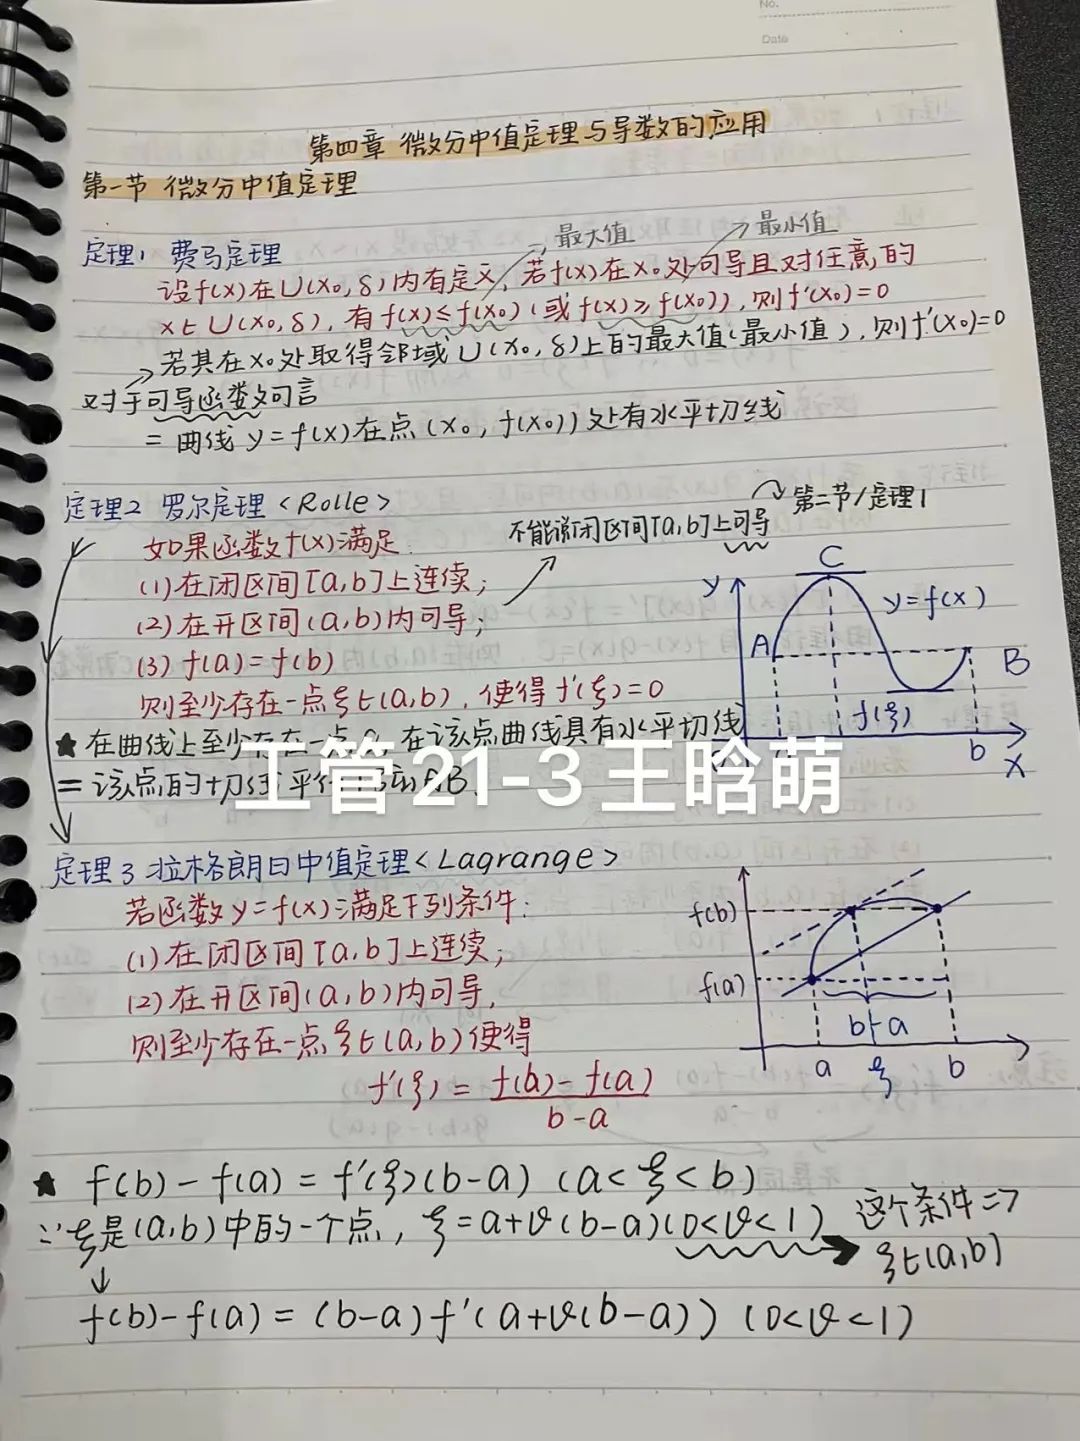 No.
Date
第四章 微分中值定理与导数的应用
第一节 微分中值定理
最大值
最小值
定理1 费马定理
设f(x)在U(x₀,δ)内有定义,若f(x)在x₀处可导且对任意的
x∈U(x₀,δ),有f(x)≤f(x₀)(或f(x)≥f(x₀)),则f'(x₀)=0
若其在x₀处取得邻域U(x₀,δ)上的最大值(最小值),则f'(x₀)=0
对于可导函数而言
= 曲线y=f(x)在点(x₀,f(x₀))处有水平切线
定理2 罗尔定理<Rolle>
第二节/定理1
不能说闭区间[a,b]上可导
如果函数f(x)满足:
(1)在闭区间[a,b]上连续;
(2)在开区间(a,b)内可导;
(3) f(a)=f(b)
则至少存在一点ξ∈(a,b),使得f'(ξ)=0
y
C
y=f(x)
A
B
f(ξ)
b
x
★ 在曲线上至少存在一点C,在该点曲线具有水平切线
= 该点的切线平行 AB
工管21-3王晗萌
定理3 拉格朗日中值定理<Lagrange>
若函数y=f(x)满足下列条件:
(1)在闭区间[a,b]上连续;
(2)在开区间(a,b)内可导,
则至少存在一点ξ∈(a,b)使得
f'(ξ) = f(b)-f(a)
b-a
f(b)
f(a)
b-a
a ξ b
★ f(b)-f(a) = f'(ξ)(b-a) (a<ξ<b)
∵ξ是(a,b)中的一个点, ξ=a+θ(b-a)(0<θ<1) 这个条件=>
ξ∈(a,b)
↓
f(b)-f(a) = (b-a)f'(a+θ(b-a)) (0<θ<1)